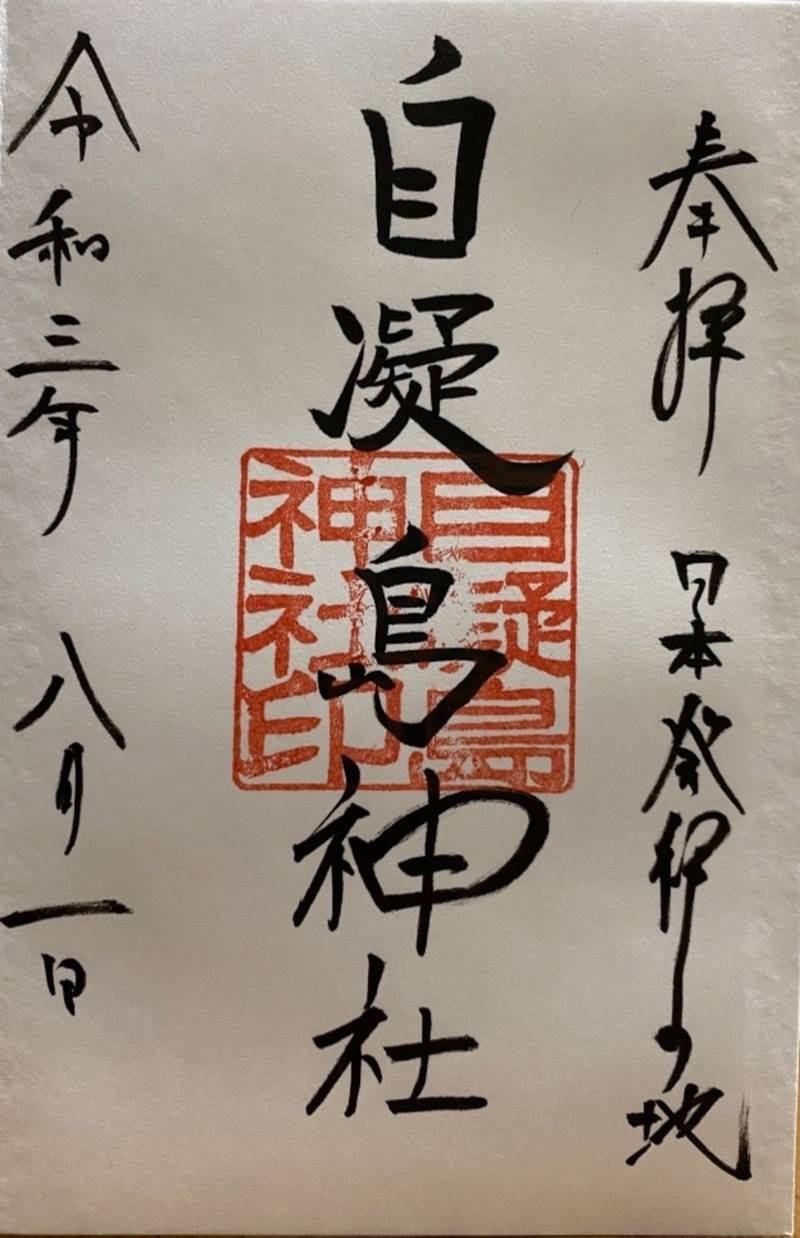 奉拝 日本発祥の地
自凝島神社
自凝島
神社印
令和三年 八月一日